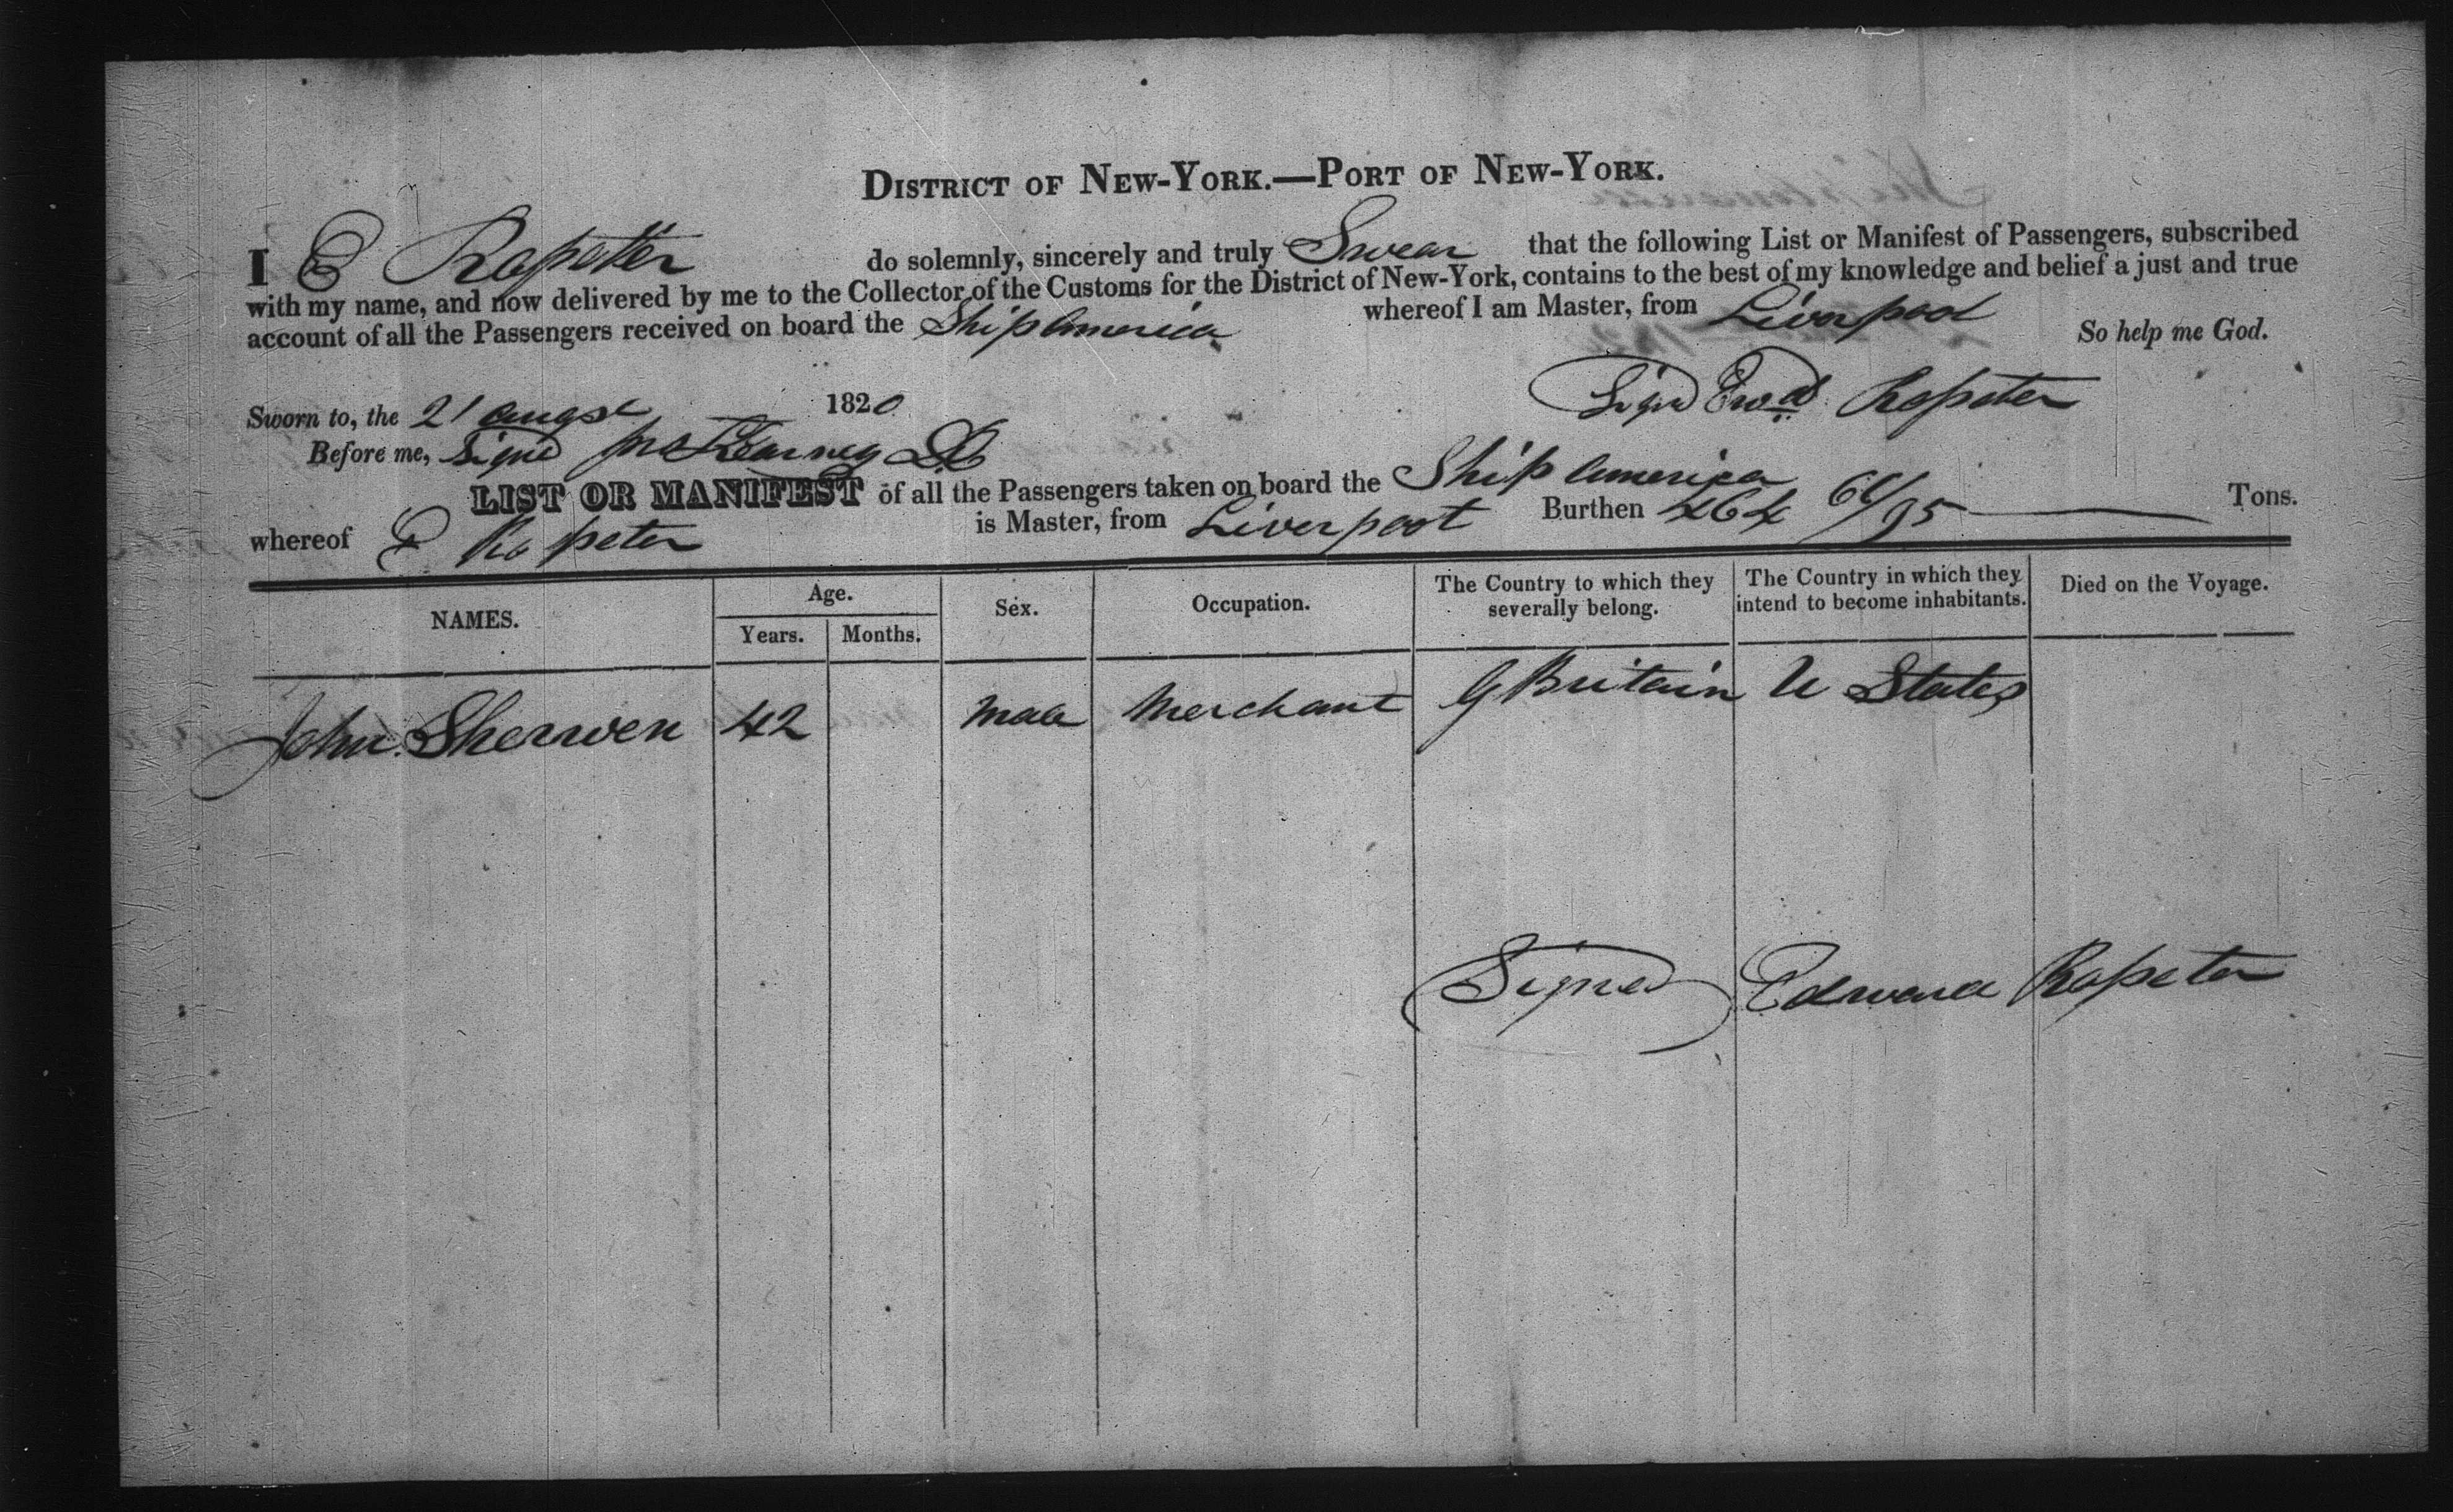 DISTRICT OF NEW-YORK.—PORT OF NEW-YORK.
I E Rosseter do solemnly, sincerely and truly Swear that the following List or Manifest of Passengers, subscribed
with my name, and now delivered by me to the Collector of the Customs for the District of New-York, contains to the best of my knowledge and belief a just and true
account of all the Passengers received on board the Ship America whereof I am Master, from Liverpool
So help me God.
Sworn to, the 21 Augst 1820
Signd Edwd Rosseter
Before me, Signd
LIST OR MANIFEST of all the Passengers taken on board the Ship America Burthen 464 /95 Tons.
whereof E Rosseter is Master, from Liverpool
NAMES. Age. Years. Months. Sex. Occupation. The Country to which they severally belong. The Country in which they intend to become inhabitants. Died on the Voyage.
John Sherwen 42 Male Merchant G Britain U States
Signed Edward Rosseter